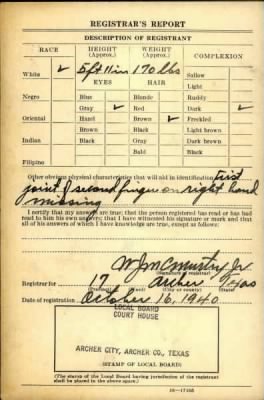 REGISTRAR'S REPORT
DESCRIPTION OF REGISTRANT
RACE HEIGHT (Approx.) WEIGHT (Approx.) COMPLEXION
White ✓ 5 ft 11 in 170 lbs Sallow
EYES HAIR Light
Negro Blue Blonde Ruddy
Gray ✓ Red Dark ✓
Oriental Hazel Brown ✓ Freckled
Brown Black Light brown
Indian Black Gray Dark brown
Bald Black
Filipino
Other obvious physical characteristics that will aid in identification first
joint of second finger on right hand
missing
I certify that my answers are true; that the person registered has read or has had
read to him his own answers; that I have witnessed his signature or mark and that
all of his answers of which I have knowledge are true, except as follows:
(Signature of registrar)
Registrar for 17 Archer Texas
(Precinct) (City or county) (State)
Date of registration October 16, 1940
LOCAL BOARD
COURT HOUSE
ARCHER CITY, ARCHER CO., TEXAS
(STAMP OF LOCAL BOARD)
(The stamp of the Local Board having jurisdiction of the registrant
shall be placed in the above space.)